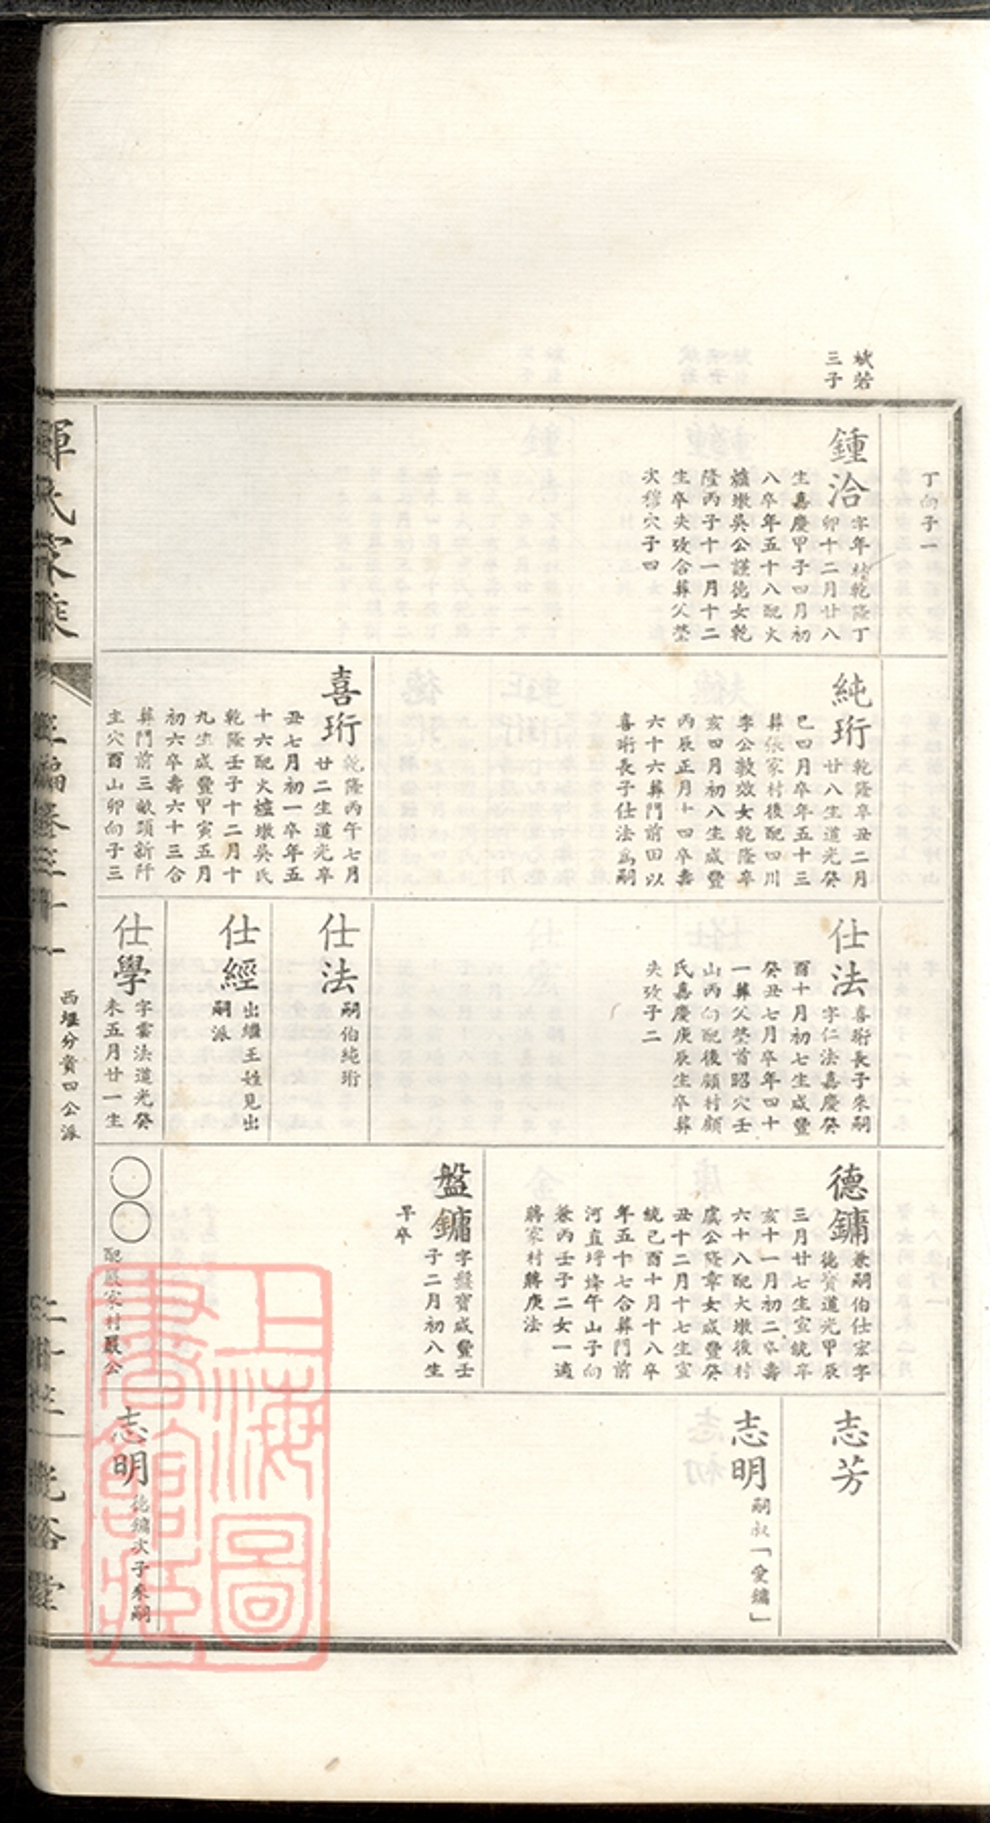 斌若
三子
丁向子一
鍾洽
字年 乾隆丁
卯十二月廿八
生嘉慶甲子四月初
八卒年五十八配火
爐墩吳公謹德女乾
隆丙子十一月十二
生卒失攷合葬父塋
次穆穴子四
純珩
乾隆辛丑二月
廿八生道光癸
巳四月卒年五十三
葬張家村後配四川
李公敦效女乾隆辛
亥四月初八生咸豐
丙辰正月十四卒壽
六十六葬門前田以
喜珩長子仕法為嗣
喜珩
乾隆丙午七月
廿二生道光辛
丑七月初一卒年五
十六配火爐墩吳氏
乾隆壬子十二月十
九生咸豐甲寅五月
初六卒壽六十三合
葬門前三畝頭新阡
主穴酉山卯向子三
仕法
喜珩長子來嗣
字仁法嘉慶癸
酉十月初七生咸豐
癸丑七月卒年四十
一葬父塋首昭穴壬
山丙向配後顧村顧
氏嘉慶庚辰生卒葬
失攷子二
仕法
嗣伯純珩
仕經
出繼王姓見出
嗣派
仕學
字雲法道光癸
未五月廿一生
德鏞
兼嗣伯仕宏字
德寶道光甲辰
三月廿七生宣統辛
亥十一月初二卒壽
六十八配大墩後村
虞公隆章女咸豐癸
丑十二月十七生宣
統己酉十月十八卒
年五十七合葬門前
河直圩烽午山子向
兼丙壬子二女一適
蔣家村蔣庚法
盤鏞
字盤寶咸豐壬
子二月初八生
早卒
〇〇
配嚴家村嚴公
志芳
志明
嗣叔「愛鏞」
志明
德鏞次子來嗣
惲氏家乘
三編卷三十一
西堰分貴四公派
上海圖
書館藏